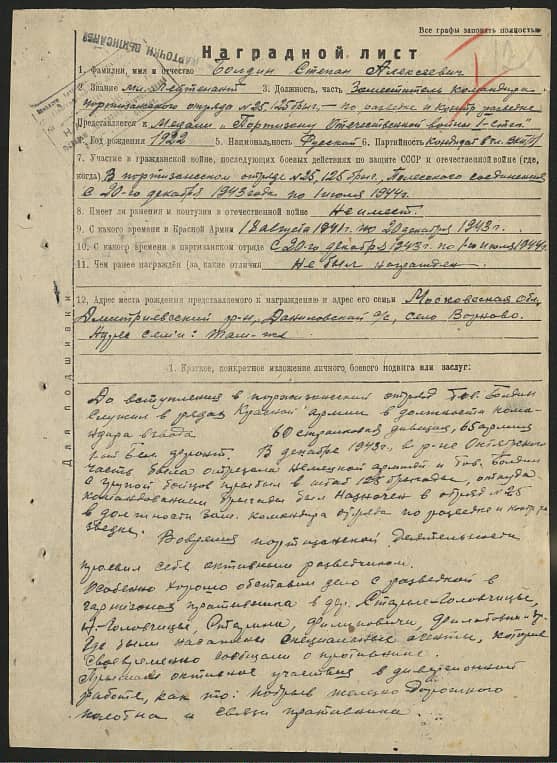 Все графы заполнять полностью
КАРТОЧКИ ВЫПИСАНЫ
Наградной лист
1. Фамилия, имя и отчество Болдин Степан Алексеевич
2. Звание мл. Лейтенант 3. Должность, часть Заместитель командира
партизанского отряда №25, 125 бриг. — по разведке и контр разведке
Представляется к Медали „Партизану Отечественной войны I-степ.“
4. Год рождения 1922 5. Национальность Русский 6. Партийность Кандидат в чл. ВКП/б/
7. Участие в гражданской войне, последующих боевых действиях по защите СССР и отечественной войне (где,
когда) В партизанском отряде №25, 125 бриг., Полесского соединения
С 20-го декабря 1943 года по 1 июля 1944 г.
8. Имеет ли ранения и контузии в отечественной войне Не имеет.
9. С какого времени в Красной Армии 18 августа 1941 г. по 20 декабря 1943 г.
10. С какого времени в партизанском отряде С 20-го декабря 1943 г. по 1-го июля 1944 г.
11. Чем ранее награждён (за какие отличия) Не был награжден
12. Адрес места рождения представляемого к награждению и адрес его семьи Московская обл.
Дмитриевский р-н, Даниловской с/с, село
Адрес семьи: там-же
Для подшивки
1. Краткое, конкретное изложение личного боевого подвига или заслуг:
До вступления в партизанский отряд тов. Болдин
служил в рядах Красной армии в должности кома-
ндира взвода 60 стрелковая дивизия, 65 армия
фронт. В декабре 1943 г. в р-не Октябрьского
часть была отрезана немецкой армией и тов. Болдин
с группой бойцов прибыл в штаб 125 бригады, откуда
командованием бригады был назначен в отряд №25
в должности зам. командира отряда по разведке и контр ра-
зведке.
Вовремя партизанской деятельности
проявил себя активным разведчиком.
Особенно хорошо обставил дело с разведкой в
гарнизонах противника в дер. Старые-Головчицы,
Н-Головчицы,
Где были насажены специальные агенты, которые
своевременно сообщали о противнике.
Принимал активное участие в диверсионной
работе, как то: подрыв железно-дорожного
полотна и связи противника.